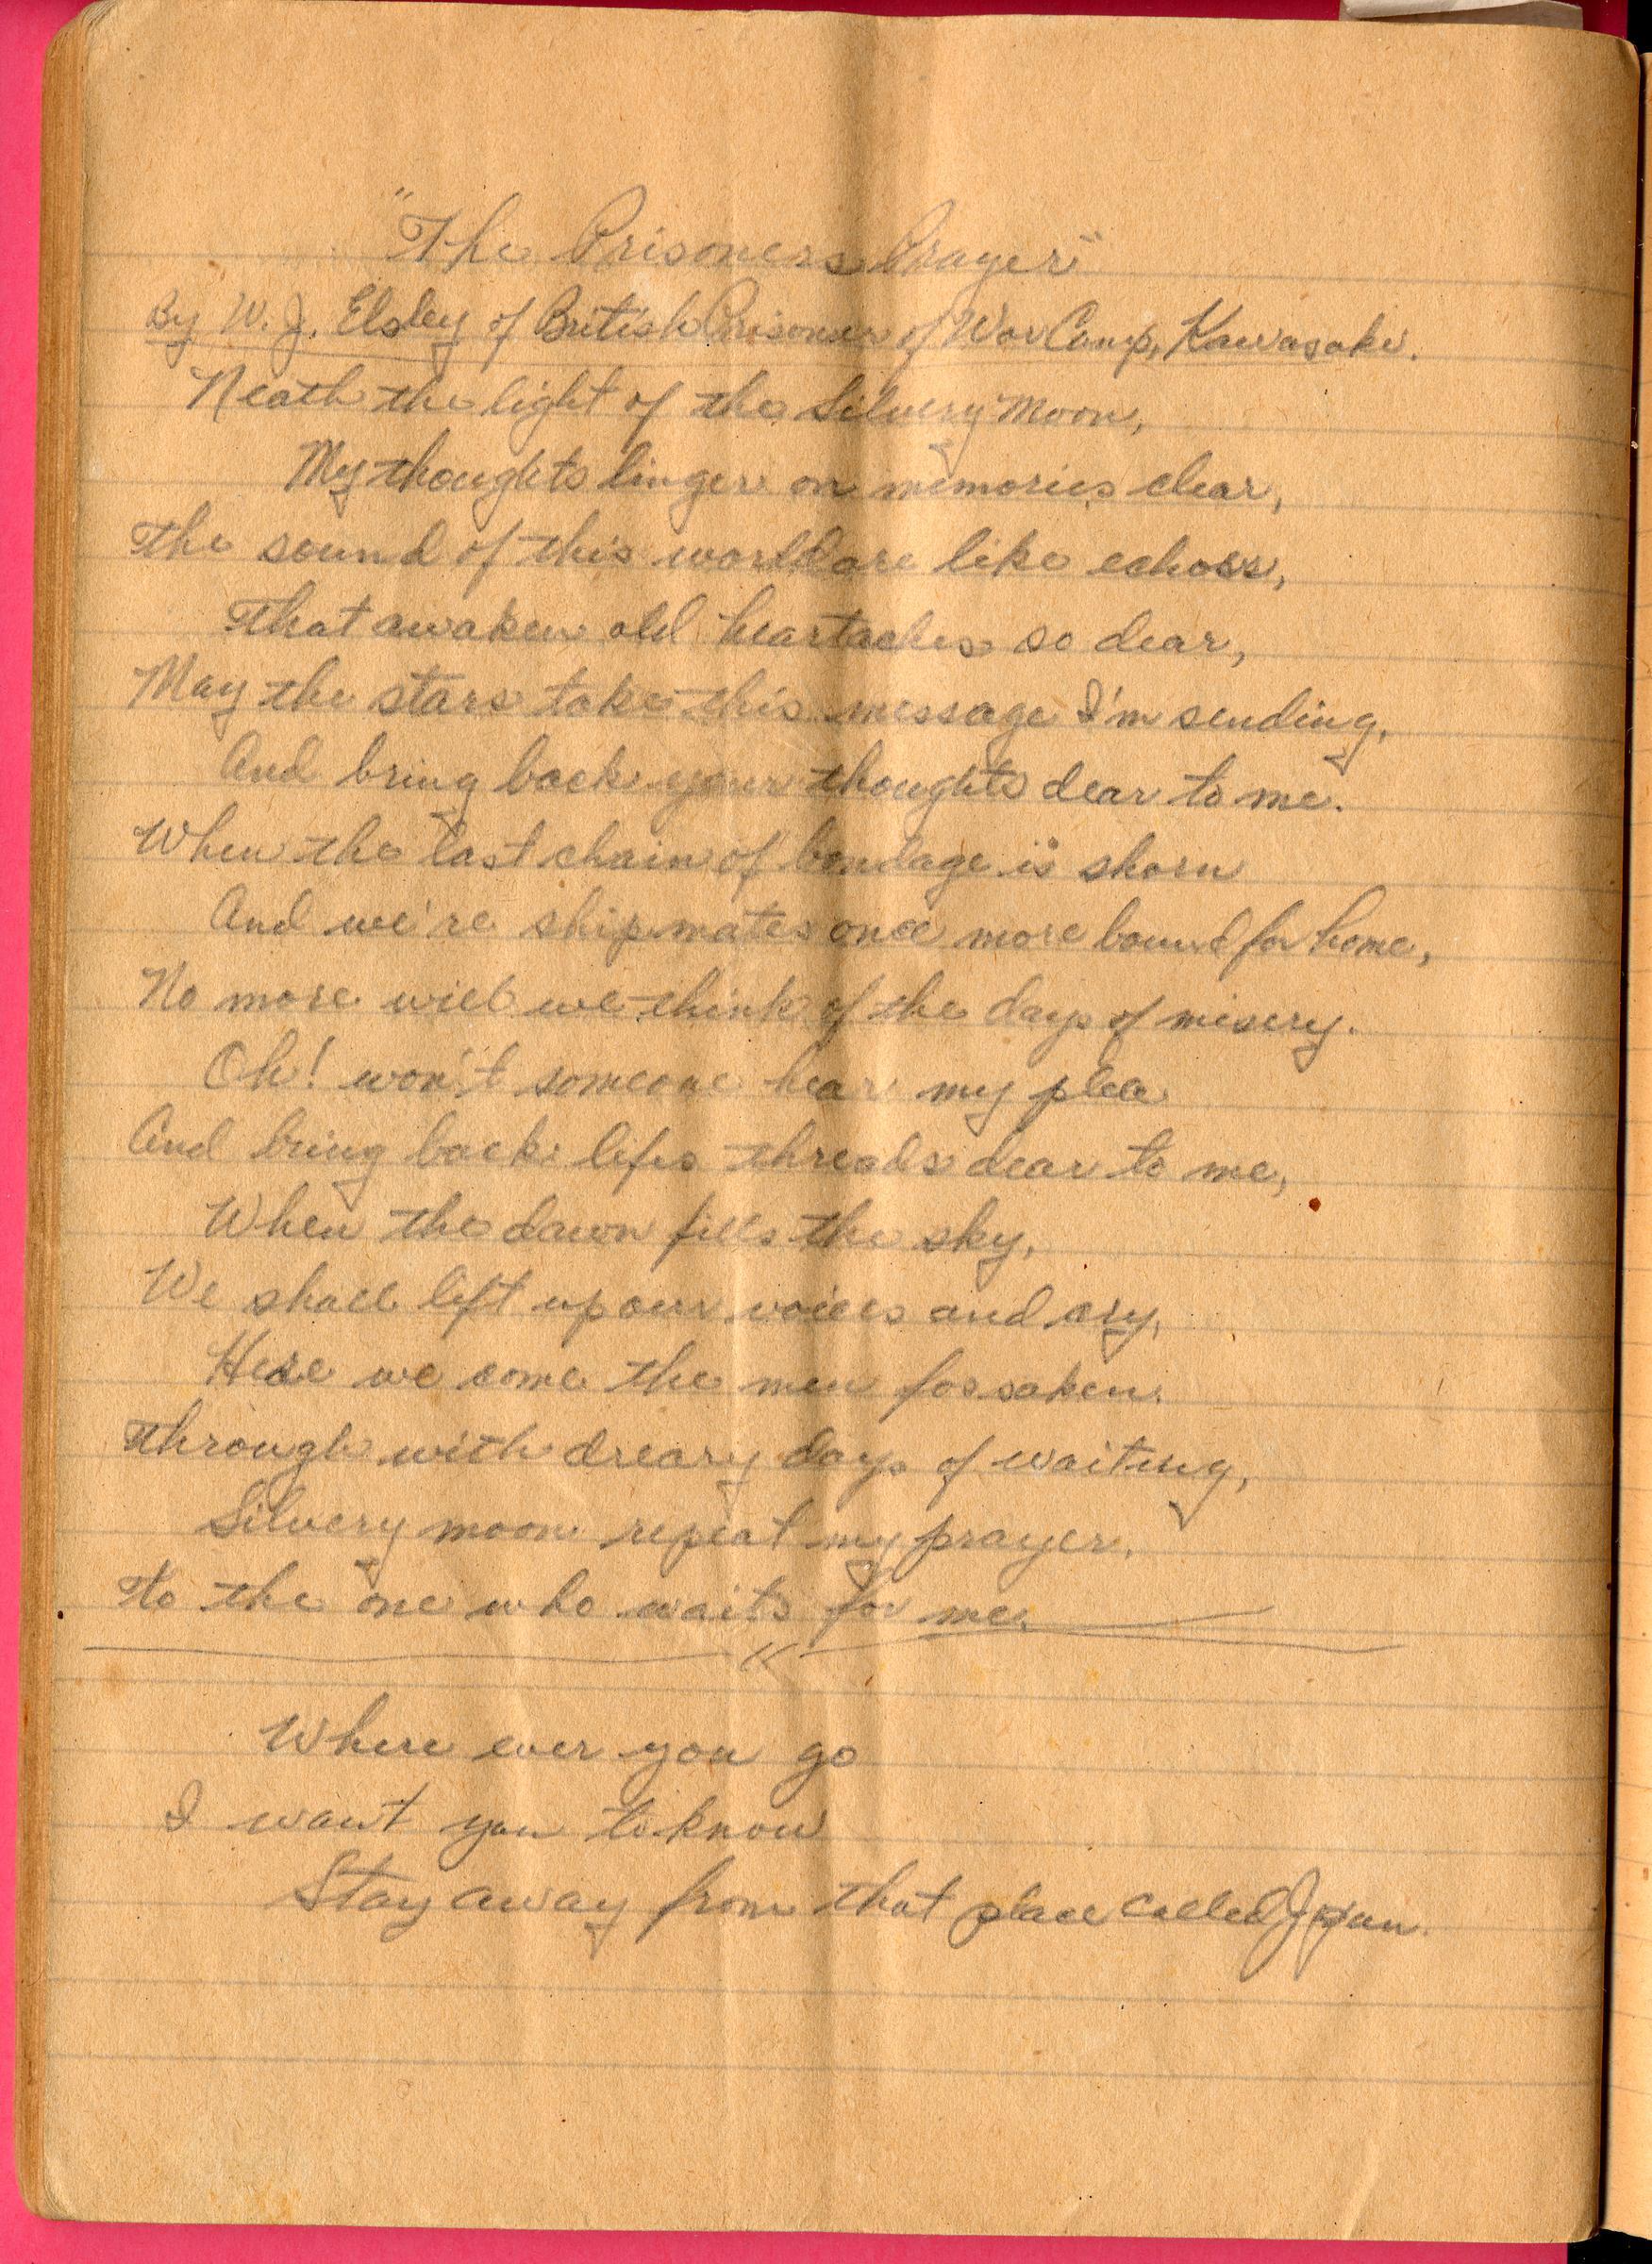 "The Prisoners Prayer"
By W. J. Elsley of British Prisoner of War Camp, Kawasaki.
Neath the light of the Silvery Moon,
My thoughts linger on memories clear,
The sound of this world are like echoes,
That awaken old heartaches so dear,
May the stars take this message I'm sending,
And bring back your thoughts dear to me.
When the last chain of bondage is shorn
And we're shipmates once more bound for home,
No more will we think of the days of misery.
Oh! won't someone hear my plea
And bring back lifes threads dear to me,
When the dawn fills the sky,
We shall lift up our voices and cry,
Here we come the men forsaken.
Through with dreary days of waiting,
Silvery moon repeat my prayer,
To the one who waits for me.
Where ever you go
I want you to know
Stay away from that place called Japan.